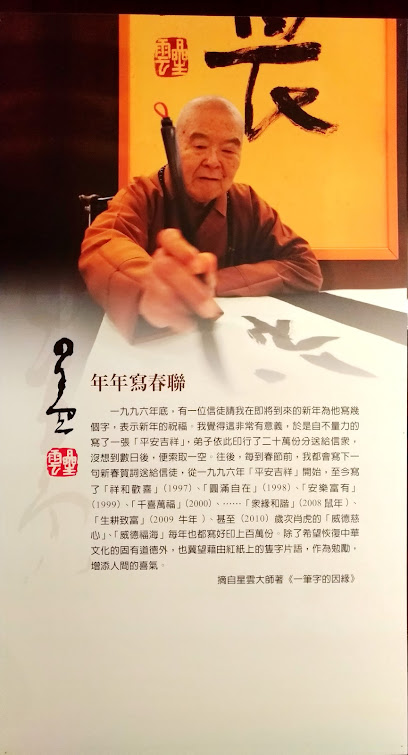 星雲
年年寫春聯
一九九六年底，有一位信徒請我在即將到來的新年為他寫幾
個字，表示新年的祝福。我覺得這非常有意義，於是自不量力的
寫了一張「平安吉祥」，弟子依此印行了二十萬份分送給信眾，
沒想到數日後，便索取一空。往後，每到春節前，我都會寫下一
句新春賀詞送給信徒，從一九九六年「平安吉祥」開始，至今寫
了「祥和歡喜」（1997）、「圓滿自在」（1998）、「安樂富有」
（1999）、「千喜萬福」（2000）、⋯⋯「眾緣和諧」（2008 鼠年）、
「生耕致富」（2009 牛年）、甚至（2010）歲次肖虎的「威德慈
心」、「威德福海」每年也都寫好印上百萬份。除了希望恢復中華
文化的固有道德外，也冀望藉由紅紙上的隻字片語，作為勉勵，
增添人間的喜氣。
摘自星雲大師著《一筆字的因緣》